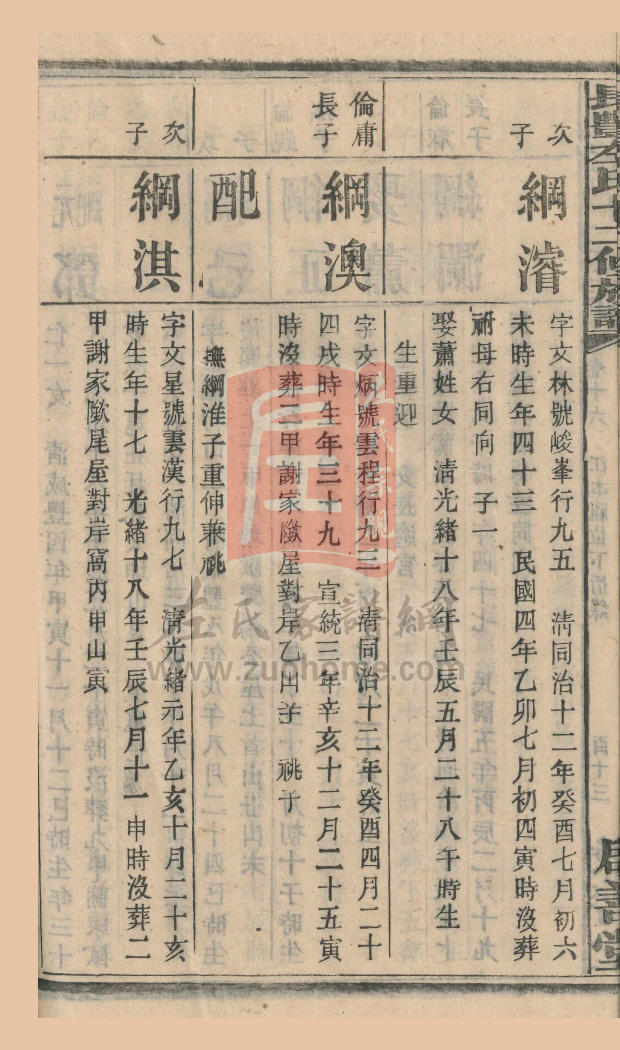 次子
綱濬
字文林號峻峯行九五 清同治十二年癸酉七月初六
未時生年四十三 民國四年乙卯七月初四寅時沒葬
祔母右同向 子一
娶蕭姓女 清光緒十八年壬辰五月二十八午時生
生重迎
倫庸長子
綱澳
字文炳號雲程行九三 清同治十二年癸酉四月二十
四戌時生年三十九 宣統三年辛亥十二月二十五寅
時沒葬二甲謝家陂屋對岸乙山 祧子
配
撫綱淮子重伸兼祧
次子
綱淇
字文星號雲漢行九七 清光緒元年乙亥十月二十亥
時生年十七 光緒十八年壬辰七月十一申時沒葬二
甲謝家陂尾屋對岸窩內甲山寅
左氏家譜網
www.zuohome.com